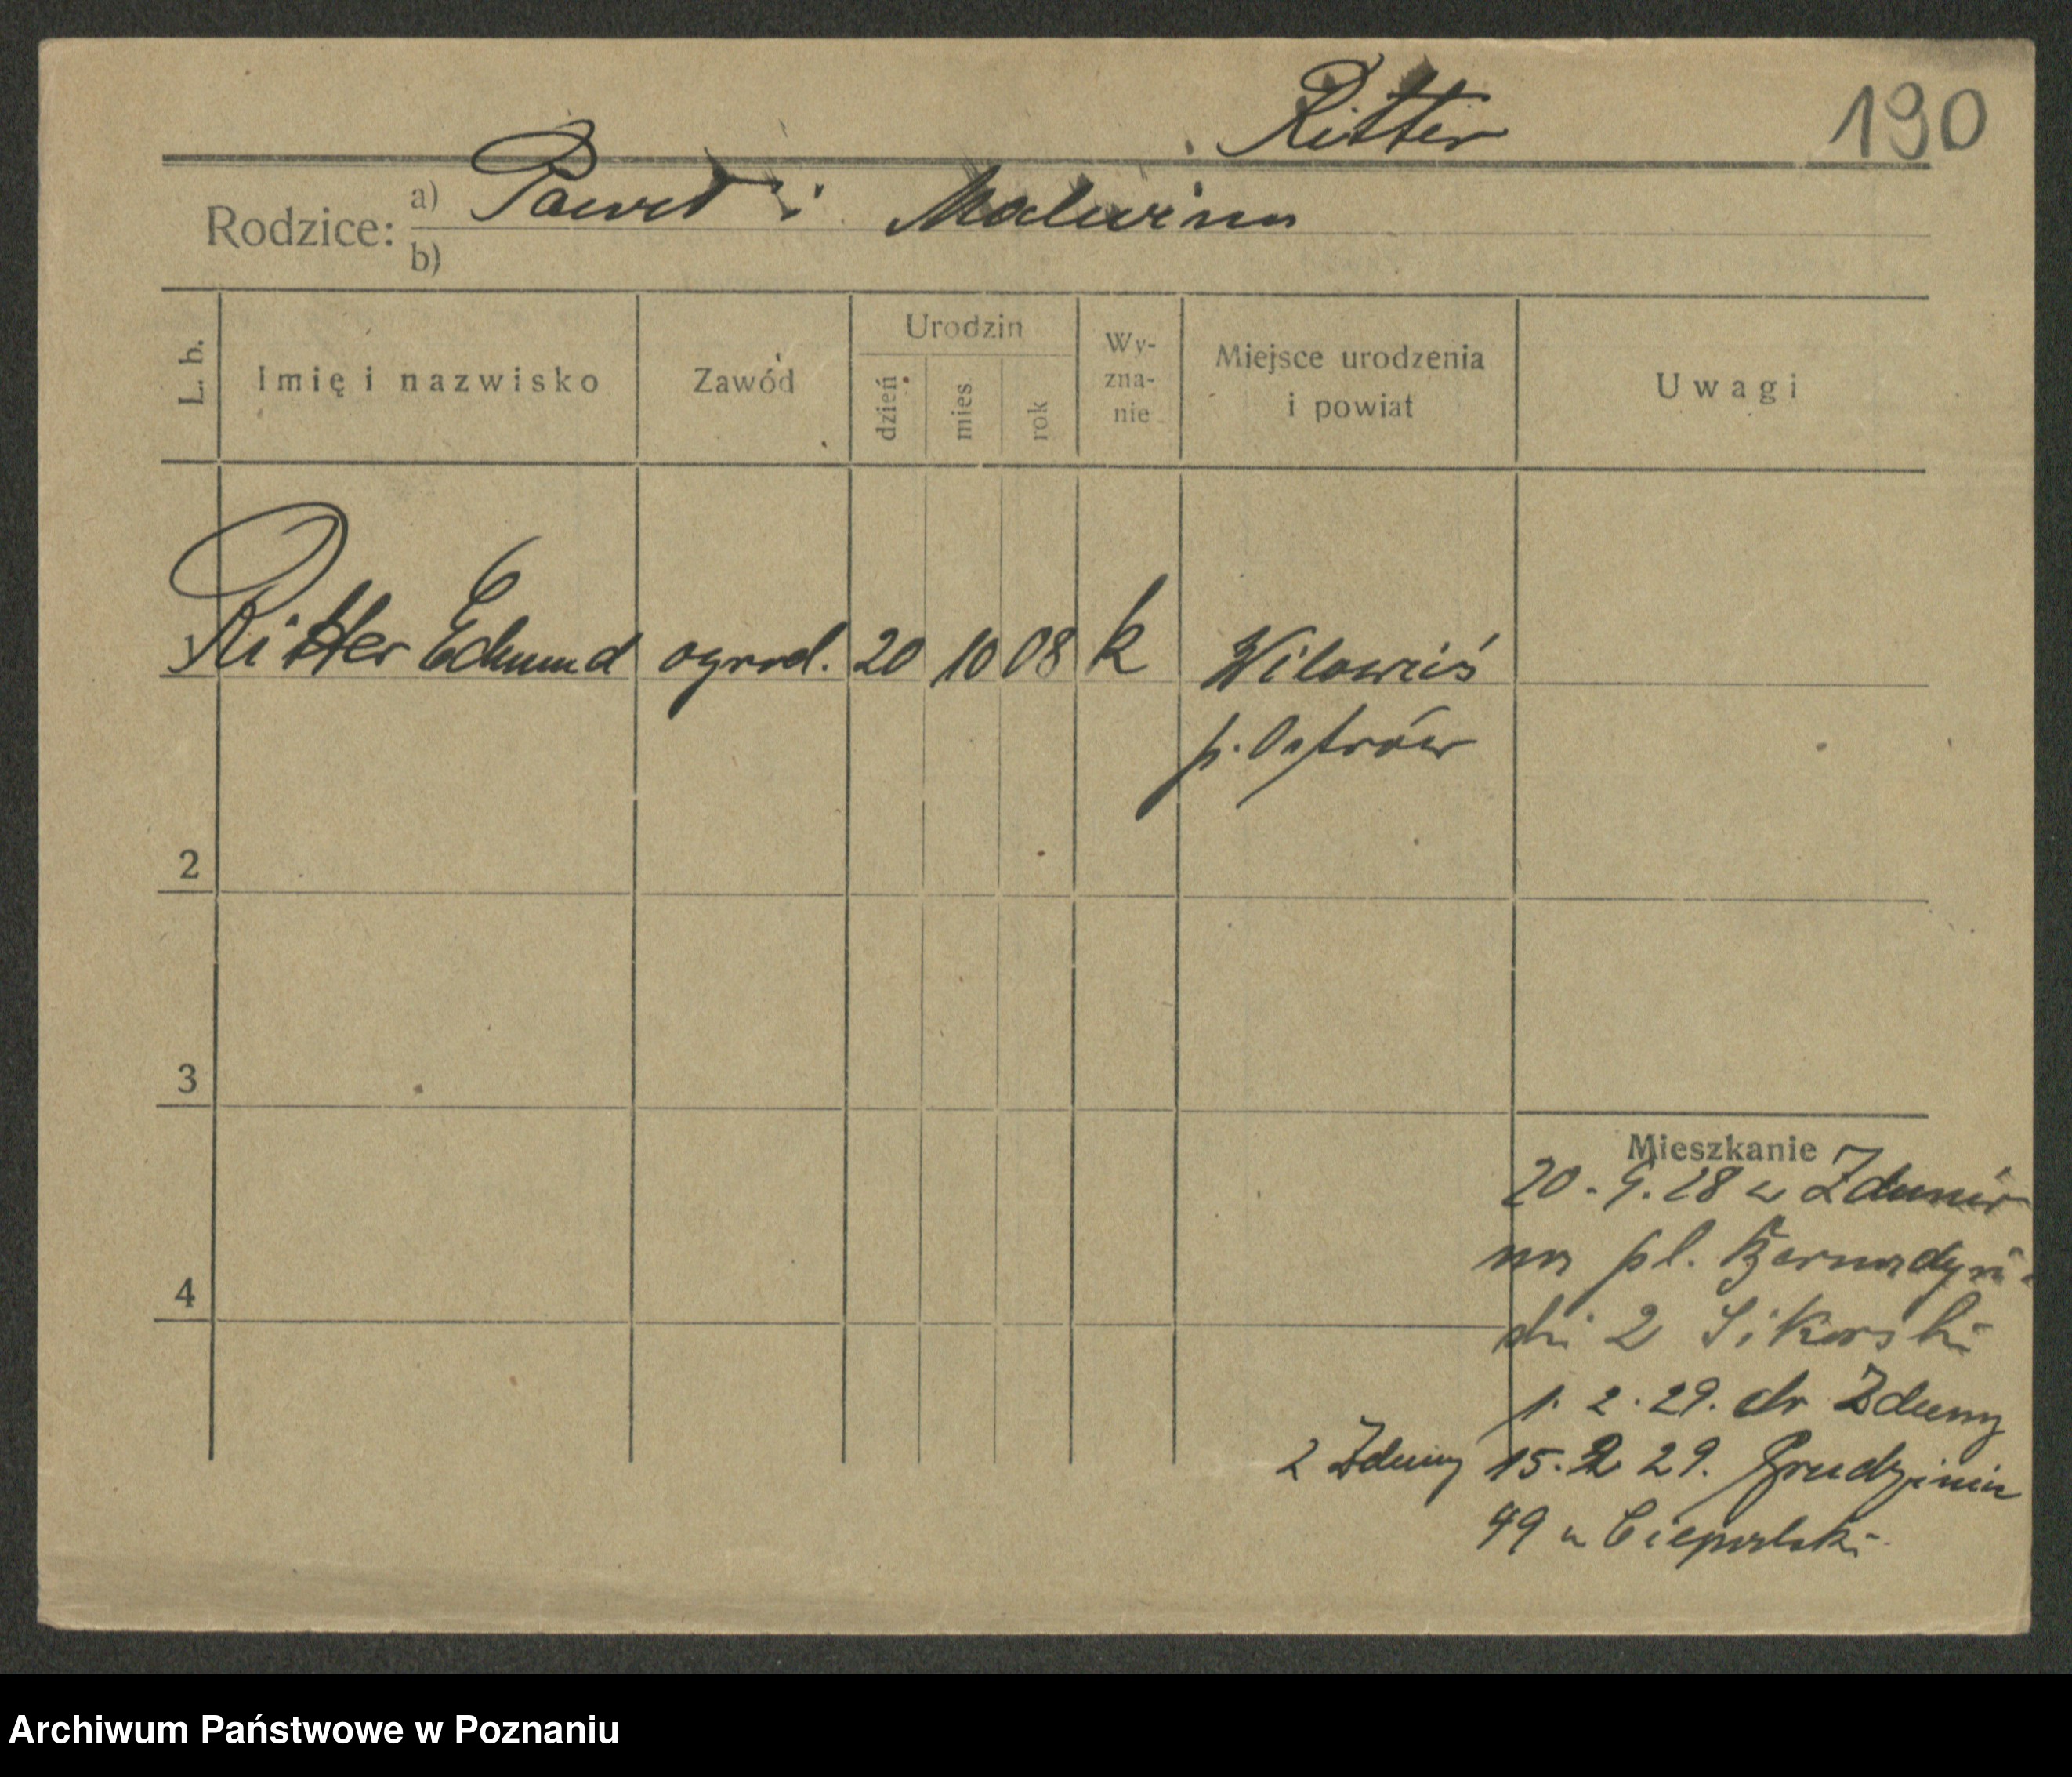 Ritter 190
Rodzice: a) Paweł i Malwina
b)
L. b. Imię i nazwisko Zawód Urodzin dzień mies. rok Wy-zna-nie Miejsce urodzenia i powiat Uwagi
1 Ritter Edmund ogrod. 20 10 08 k
p. Ostrów
2
3
Mieszkanie
20.9.28 w
na pl. Bernardyń-
4
ski 2 Sikorski
1.2.29. do Zduny
z Zduny 15.2 29.
49 u
Archiwum Państwowe w Poznaniu